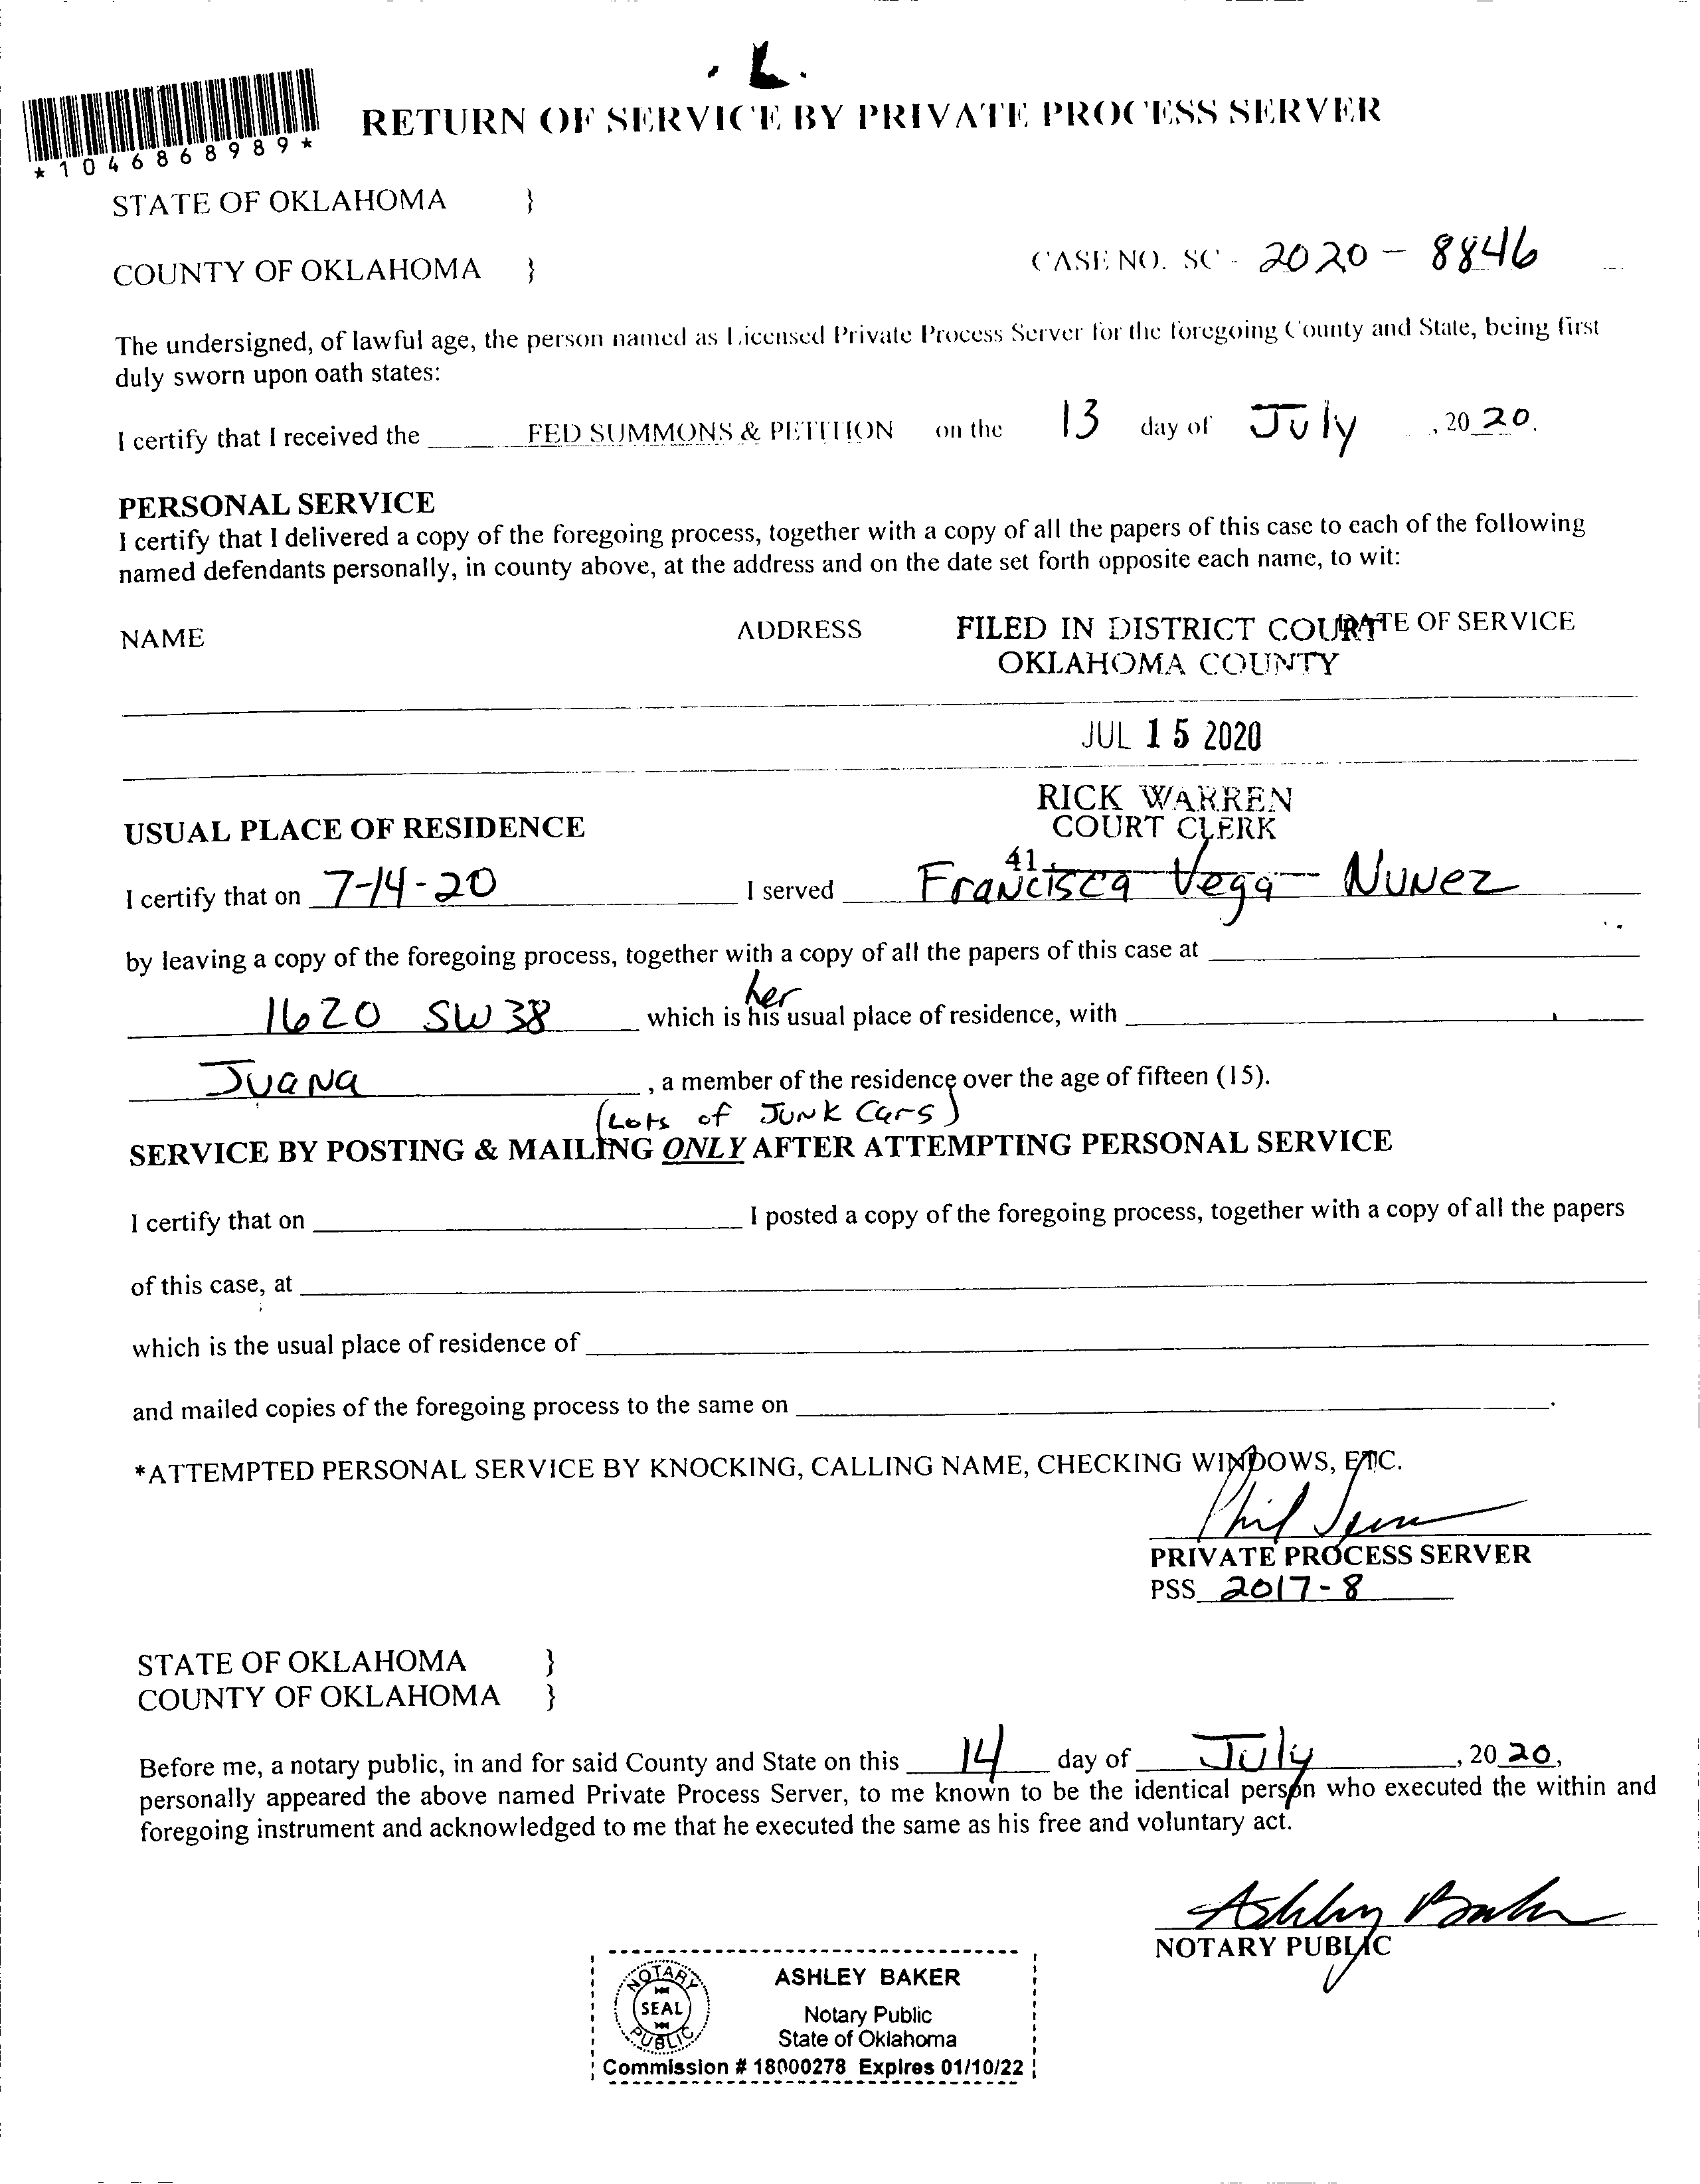 L.
RETURN OF SERVICE BY PRIVATE PROCESS SERVER
*1046868989*
STATE OF OKLAHOMA }
COUNTY OF OKLAHOMA } CASE NO. SC - 2020 - 8846
The undersigned, of lawful age, the person named as Licensed Private Process Server for the foregoing County and State, being first
duly sworn upon oath states:
I certify that I received the FED SUMMONS & PETITION on the 13 day of July , 20 20.
PERSONAL SERVICE
I certify that I delivered a copy of the foregoing process, together with a copy of all the papers of this case to each of the following
named defendants personally, in county above, at the address and on the date set forth opposite each name, to wit:
NAME ADDRESS DATE OF SERVICE
FILED IN DISTRICT COURT
OKLAHOMA COUNTY
JUL 15 2020
RICK WARREN
COURT CLERK
41
USUAL PLACE OF RESIDENCE
I certify that on 7-14-20 I served Francisca Vega Nunez
by leaving a copy of the foregoing process, together with a copy of all the papers of this case at
her
1620 SW 38 which is his usual place of residence, with
Juana , a member of the residence over the age of fifteen (15).
(Lots of Junk Cars)
SERVICE BY POSTING & MAILING ONLY AFTER ATTEMPTING PERSONAL SERVICE
I certify that on I posted a copy of the foregoing process, together with a copy of all the papers
of this case, at
which is the usual place of residence of
and mailed copies of the foregoing process to the same on .
*ATTEMPTED PERSONAL SERVICE BY KNOCKING, CALLING NAME, CHECKING WINDOWS, ETC.
Phil
PRIVATE PROCESS SERVER
PSS 2017-8
STATE OF OKLAHOMA }
COUNTY OF OKLAHOMA }
Before me, a notary public, in and for said County and State on this 14 day of July , 20 20,
personally appeared the above named Private Process Server, to me known to be the identical person who executed the within and
foregoing instrument and acknowledged to me that he executed the same as his free and voluntary act.
Ashley Baker
NOTARY PUBLIC
NOTARY PUBLIC SEAL
ASHLEY BAKER
Notary Public
State of Oklahoma
Commission # 18000278 Expires 01/10/22